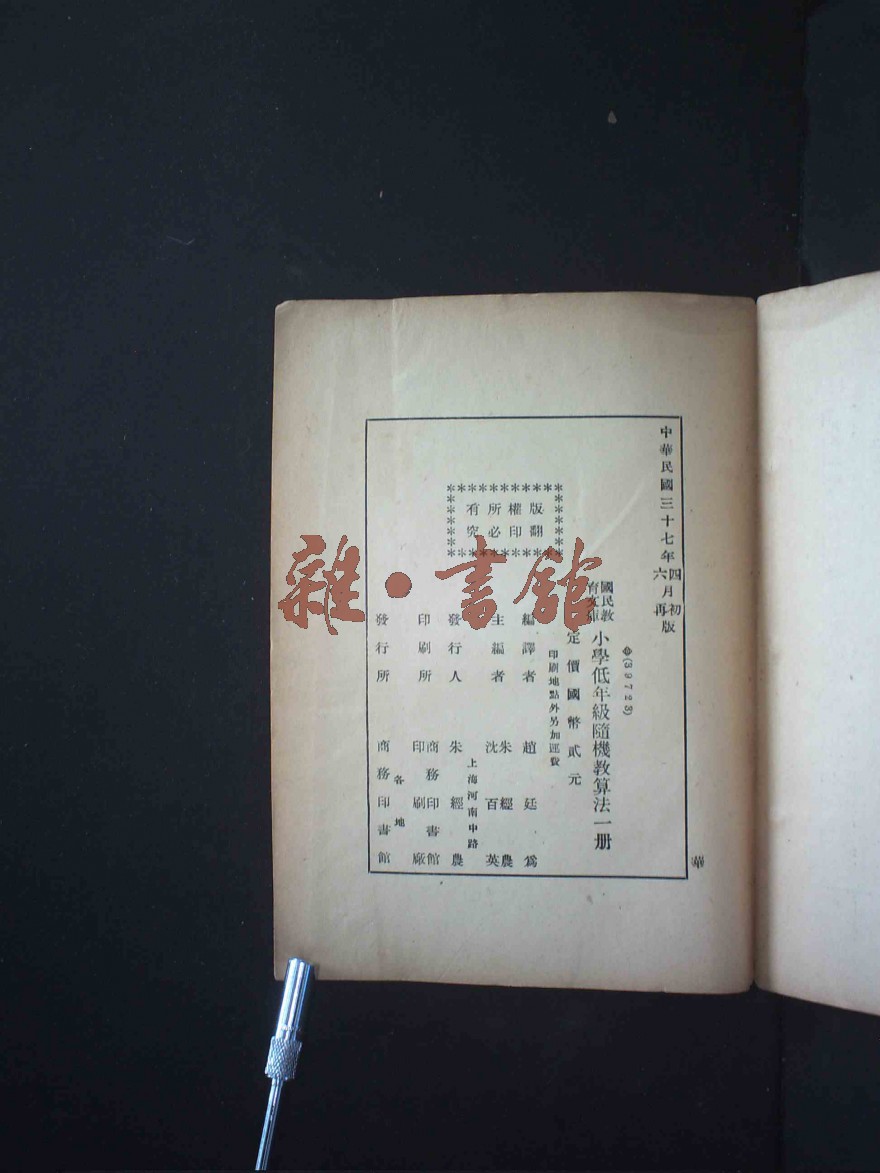 中華民國三十七年四月初版
六月再版
(39723)
國民教育文庫
小學低年級隨機教算法一册
定價國幣貳元
印刷地點外另加運費
版權所有
翻印必究
編譯者 趙廷爲
主編者 朱經農
沈百英
上海河南中路
發行人 朱經農
印刷所 商務印書館
印刷廠
各地
發行所 商務印書館
華
雜·書館